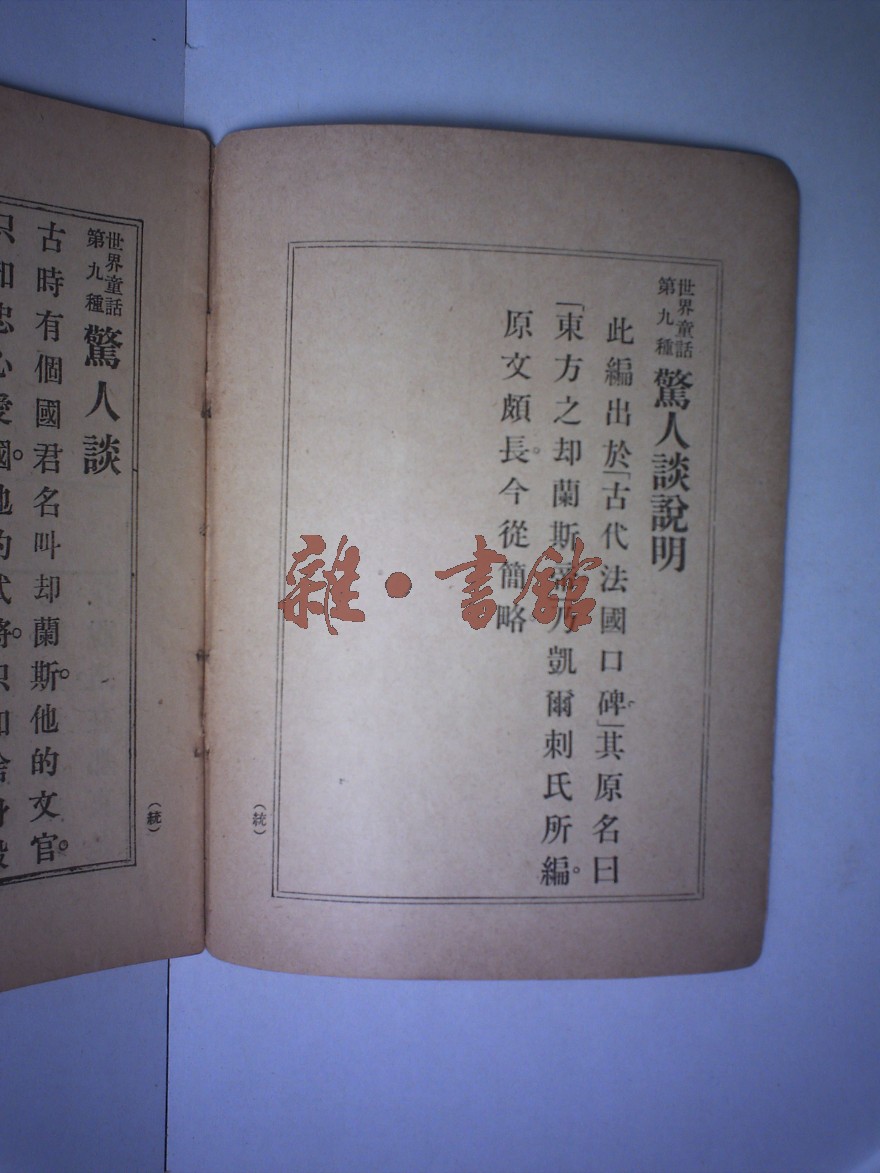 世界童話
第九種
驚人談說明
此編出於「古代法國口碑。」其原名曰
「東方之却蘭斯帝」乃凱爾刺氏所編。
原文頗長。今從簡略
(統)
世界童話
第九種
驚人談
古時有個國君名叫却蘭斯。他的文官。
只知忠心愛國。他的武將。只知捨身殺
(統)
雜·書館